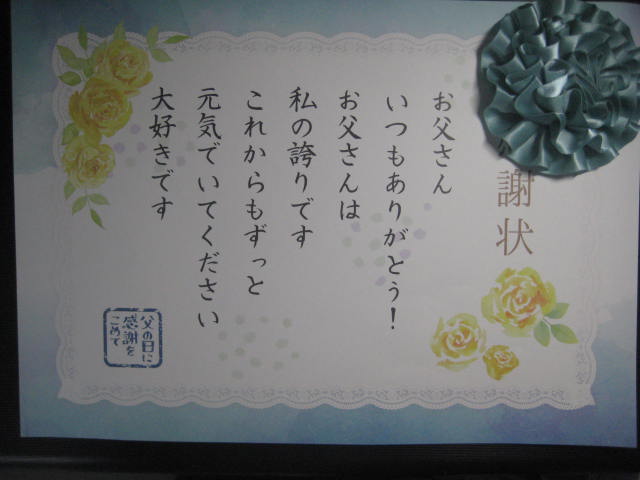 謝状
お父さん
いつもありがとう!
お父さんは
私の誇りです
これからもずっと
元気でいてください
大好きです
父の日に
感謝を
こめて